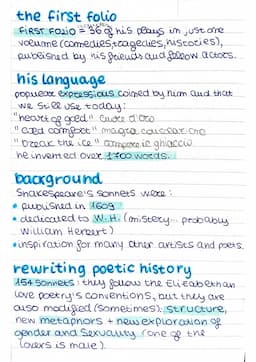 the first folio
FIRST FOLIO = 36 of his plays in just one
volume (comedies, tragedies, histories),
published by his friends and fellow actors.
his language
popular expressions coined by him and that
we still use today:
"heart of gold" cuore d'oro
"cold comfort" magra consolazione
"break the ice" rompere il ghiaccio
he invented over 1700 words.
background
Shakespeare's sonnets were:
• published in 1609
• dedicated to W. H. (mistery... probably
William Herbert)
• inspiration for many other artists and poets.
rewriting poetic history
154 sonnets: they follow the Elizabethan
love poetry's conventions, but they are
also modified (sometimes). structure,
new metaphors + new exploration of
gender and sexuality (one of the
lovers is male).